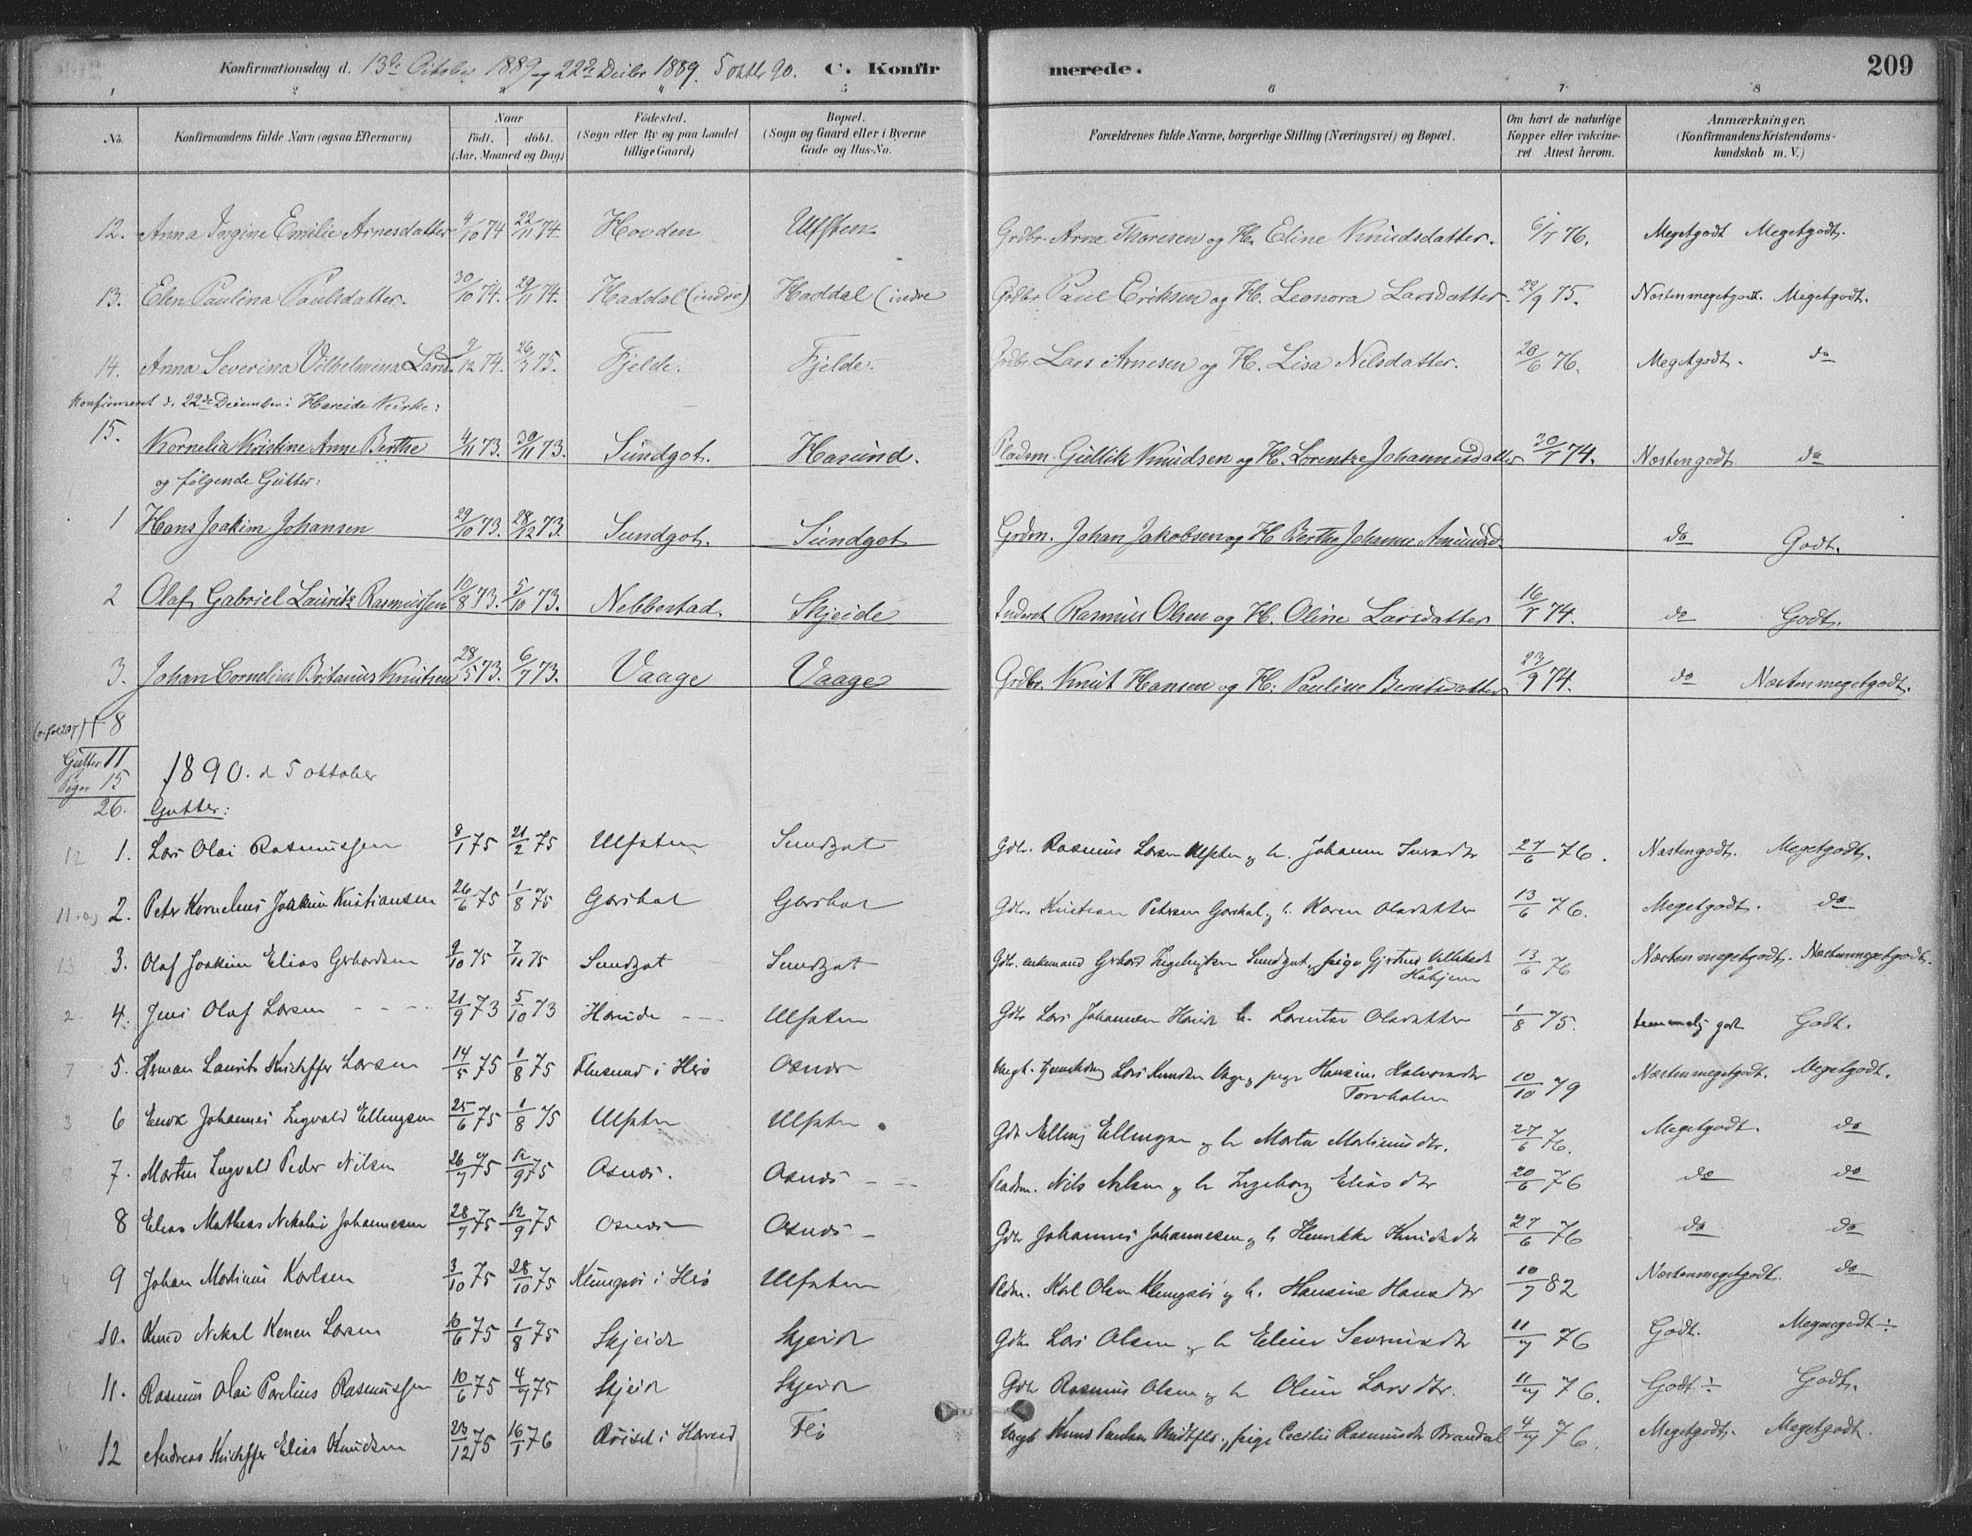 Konfirmationsdag d. 13de October 1889 og 22de Decbr 1889. 5 oktbr 90. C. Konfirmerede. 209
1 2 3 4 5 6 7 8
No. Konfirmandens fulde Navn (ogsaa Efternavn) Naar født. døbt. (Aar, Maaned og Dag) Fødested. (Sogn eller By og paa Landet tillige Gaard) Bopæl. (Sogn og Gaard eller i Byerne Gade og Hus-No. Forældrenes fulde Navne, borgerlige Stilling (Næringsvei) og Bopæl. Om havt de naturlige Kopper eller vakcineret Attest herom. Anmærkninger, (Konfirmandens Kristendomskundskab m. V.)
12. Anna Ingine Emilie Arnesdatter 4/10 74 22/11 74. Hovden Ulfsten Grdbr. Arne Thoresen og H. Eline Knudsdatter. 76. Megetgodt Megetgodt.
13. Elen Paulina Paulsdatter. 30/10 74. 29/11 74. Haddal (indre) Haddal (indre Grdbr Paul Eriksen og H. Leonora Larsdatter. 22/9 75. Næstenmegetgodt. Megetgodt.
14. Anna Severina Vilhelmina Larsd. 9/12 74. 26/3 75. Fjelde. Fjelde. Grdbr. Lars Arnesen og H. Lisa Nilsdatter. 28/6 76. Megetgodt. do
Konfirmeret d. 22de December i Hareide Kirke:
15. Kornelia Kristine Anne Berthe 4/11 73. 30/11 73. Sundgot. Hasund. Pladsm. Gullik Knudsen og H. Lorentze Johannesdatter 30/7 74. Næstengodt do
og følgende Gutter:
1 Hans Joakim Johansen 29/10 73. 28/12 73. Sundgot. Sundgot Grdm. Johan Jakobsen og H Berthe Johanne Amundsd. do Godt.
2 Olaf Gabriel Lauritz Rasmussen 10/8 73. 5/10 73. Nebbestad. Skjeide Inderst Rasmus Olsen og H. Oline Larsdatter 16/7 74. do Godt.
3. Johan Cornelius Britanus Knutsen 28/5 73. 6/7 73. Vaage Vaage Grdbr. Knut Hansen og H. Pauline Berntsdatter 23/9 74. do Næstenmegetgodt.
+ 8
Gutter 11
Piger 15
26.
1890. d 5 oktober
Gutter:
12 1. Lars Olai Rasmussen 8/1 75 21/2 75 Ulfsten Sundgot Gdbr. Rasmus Larsen Ulfsten og h. Johanne Iversdtr 27/6 76. Næstengodt. Megetgodt.
11 2. Peter Kornelius Joakim Kristiansen 26/6 75 1/8 75 Garshol Garshol Gdbr. Kristian Petersen Garshol og h. Karen Olsdatter 13/6 76. Megetgodt. do
13 3. Olaf Joakim Elias Gerhardsen 9/10 75 7/11 75 Sundgot Sundgot Gdbr. enkemand Gerhard Sundgot, pige 13/6 76 Næsten megetgodt. Næstenmegetgodt.
2 4. Jens Olaf Larsen 21/9 73 5/10 73 Hareide Ulfsten Gdbr Lars Johannesen Hareide h. Lorentse Olsdatter 1/8 75. temmelig godt Godt.
7 5. Herman Laurits Kristoffer Larsen 14/5 75 1/8 75 Flusund i Herö Osnes Ungk. Lars Knudsen og pige Hansine Halvorsdtr 10/10 79 Næstenmegetgodt. Megetgodt.
3 6 Enok Johannes Ingvald Ellingsen 25/6 75 1/8 75 Ulfsten Ulfsten Gdbr Elling Ellingsen og h Marta Martinusdtr. 27/6 76. Megetgodt. do
7. Morten Ingvald Peder Nilsen 26/7 75 12/9 75 Osnes. Osnes Pladsm. Nils Nilsen og h Ingeborg Eliasdtr 20/6 76 do do
8 Elias Mathias Nikolai Johannesen 28/7 75 12/9 75 Osnes Osnes Gdbr Johannes Johannesen og h Henrikke Knudsdtr 27/6 76 do do
4 9 Johan Martinus Karlsen 3/10 75 28/10 75 Klungsör i Herö Ulfsten Pldsm. Karl Olsen og h. Hansine Hansdtr 10/7 82 Næstenmegetgodt. do
10. Knud Nikol Larsen 10/6 75 1/8 75 Skjeide Skjeide Gdbr Lars Olsen og h Eline Severinsdtr 11/7 76 Godt.
11. Rasmus Olai Parelius Rasmussen 10/6 75 4/7 75 Skjeide Skjeide Gdbr Rasmus Olsen og h Oline Larsdtr. 11/7 76. Godt ÷ Godt.
12 Andreas Kristoffer Elias Knudsen 23/12 75 16/1 76 Röiset i Hareid Flö Ungk Knud Paulsen og pige Cecilie Rasmusdtr Brandal 4/7 76. Megetgodt. Megetgodt.